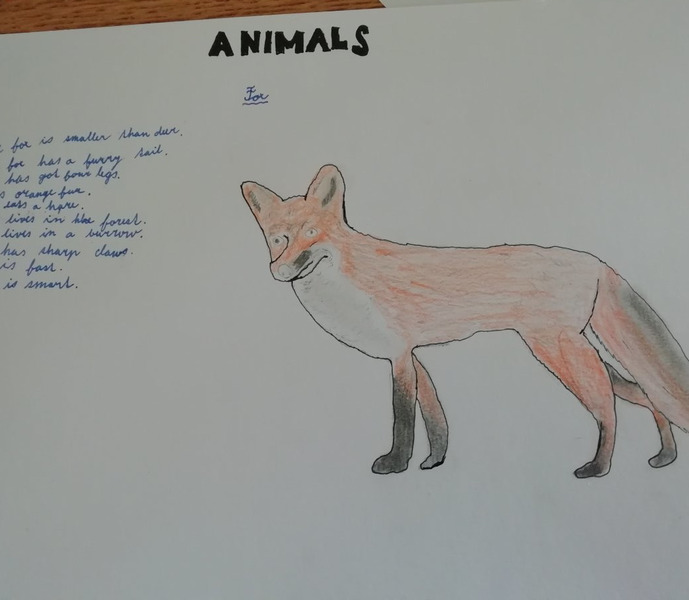 ANIMALS
Fox
fox is smaller than deer.
fox has a furry tail.
has got four legs.
s orange fur.
eats a hare.
lives in the forest.
lives in a burrow.
has sharp claws.
is fast.
is smart.